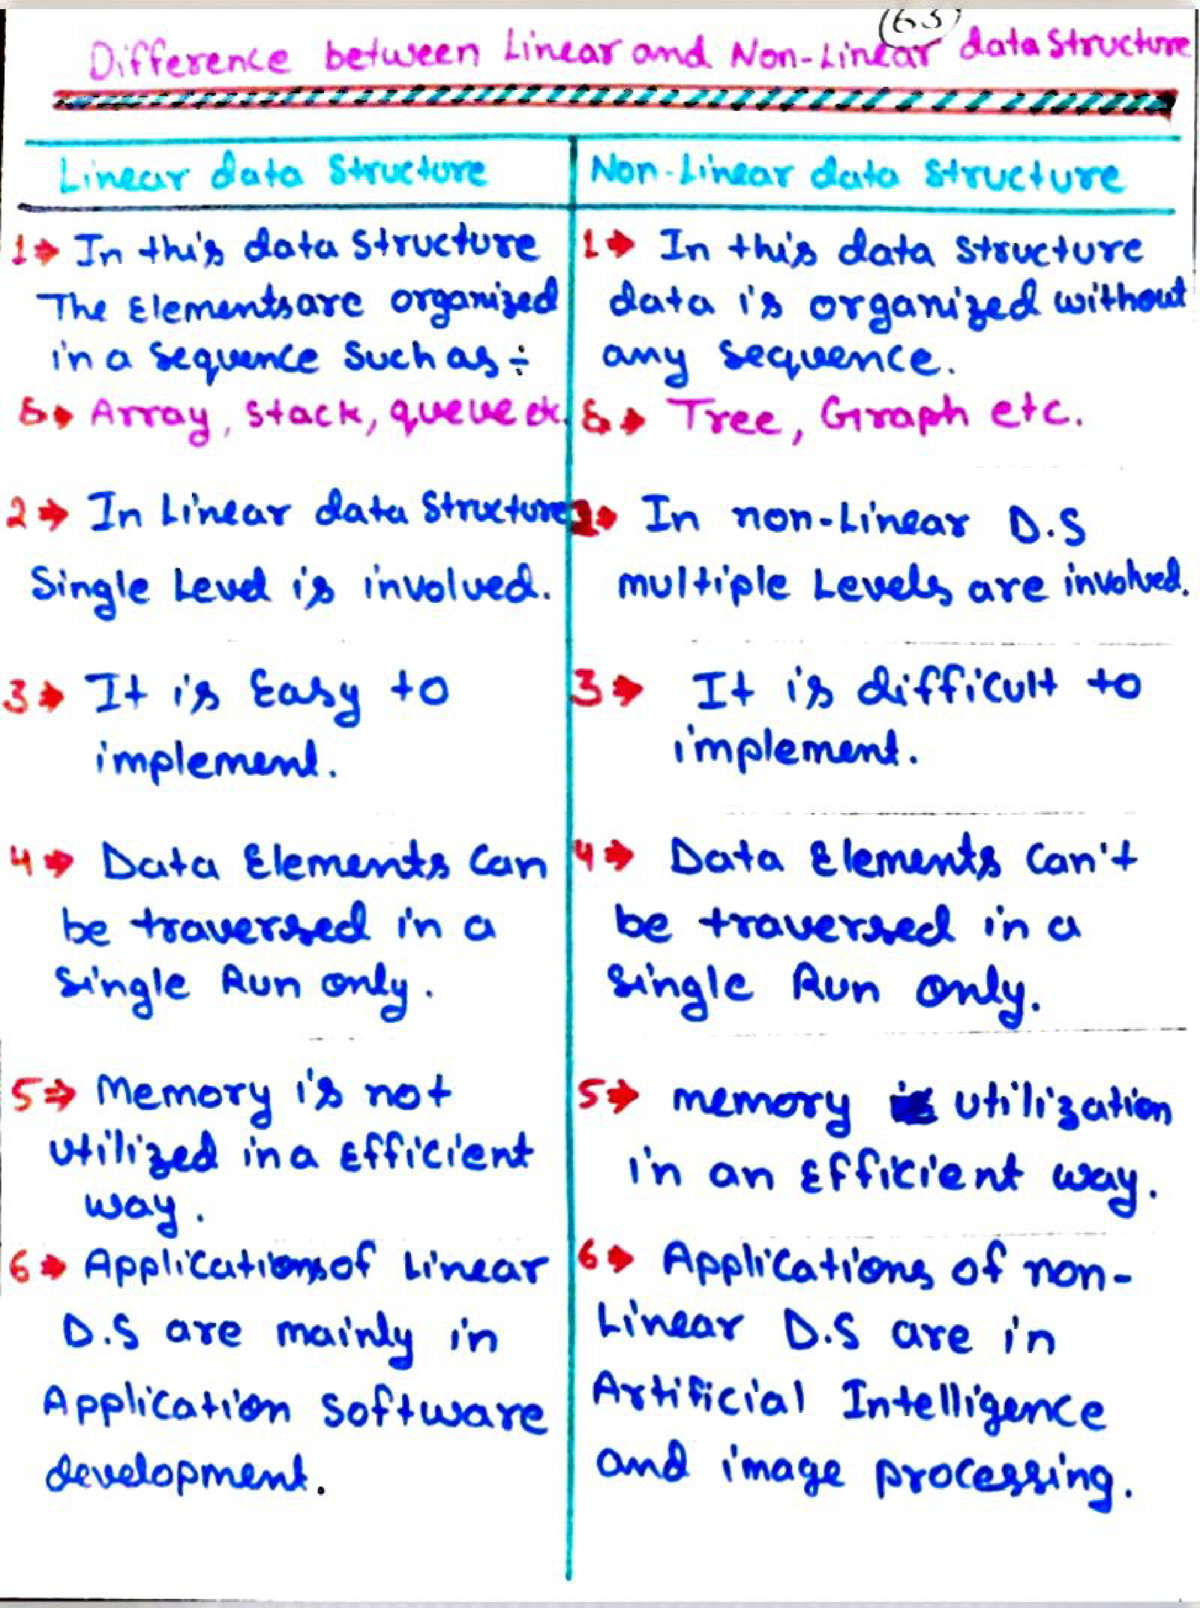 (63)
Difference between Linear and Non-Linear data Structure
Linear data Structure
1⇒ In this data Structure
The Elements are organized
in a Sequence Such as ÷
Array, Stack, queue etc.
2⇒ In Linear data Structure
Single Level is involved.
3⇒ It is Easy to
implement.
4⇒ Data Elements Can
be traversed in a
Single Run only.
5⇒ Memory is not
utilized in a Efficient
way.
6⇒ Applications of Linear
D.S are mainly in
Application Software
development.
Non-Linear data Structure
1⇒ In this data Structure
data is organized without
any Sequence.
Tree, Graph etc.
2⇒ In non-Linear D.S
multiple Levels are involved.
3⇒ It is difficult to
implement.
4⇒ Data Elements Can't
be traversed in a
Single Run only.
5⇒ memory utilization
in an Efficient way.
6⇒ Applications of non-
Linear D.S are in
Artificial Intelligence
and image processing.